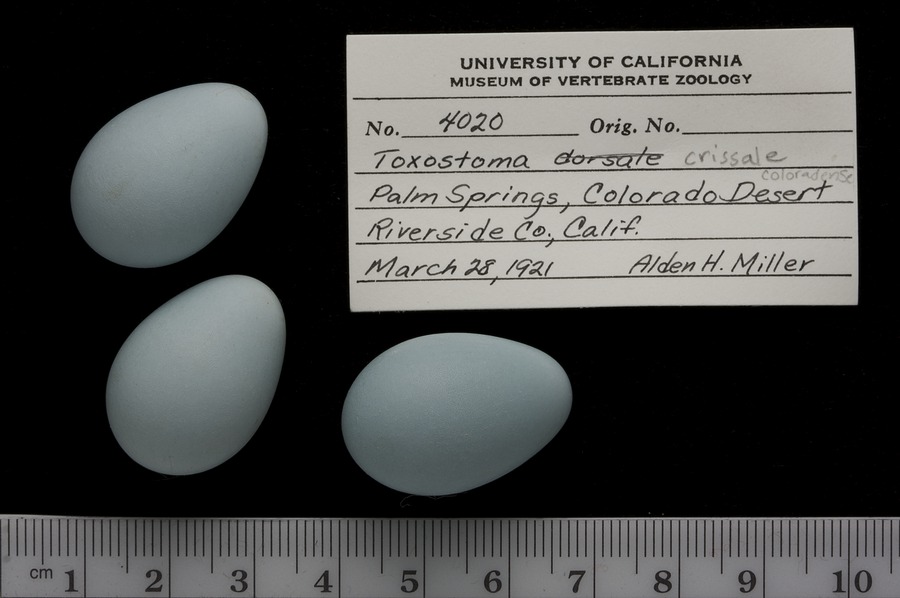 UNIVERSITY OF CALIFORNIA
MUSEUM OF VERTEBRATE ZOOLOGY
No. 4020 Orig. No.
Toxostoma dorsale crissale
coloradense
Palm Springs, Colorado Desert
Riverside Co., Calif.
March 28, 1921 Alden H. Miller
cm 1 2 3 4 5 6 7 8 9 10